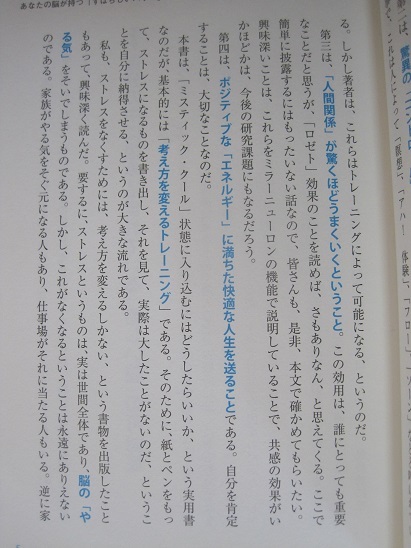 あなたの脳が持つ
る。しかし著者は、これらはトレーニングによって可能になる、というのだ。
第三は、「人間関係」が驚くほどうまくいくということ。この効用は、誰にとっても重要
なことだと思うが、「ロゼト」効果のことを読めば、さもありなん、と思えてくる。ここで
簡単に披露するにはもったいない話なので、皆さんも、是非、本文で確かめてもらいたい。
興味深いことは、これらをミラーニューロンの機能で説明していることで、共感の効果がい
かほどかは、今後の研究課題にもなるだろう。
第四は、ポジティブな「エネルギー」に満ちた快適な人生を送ることである。自分を肯定
することは、大切なことなのだ。
本書は、「ミスティック・クール」状態に入り込むにはどうしたらいいか、という実用書
なのだが、基本的には「考え方を変えるトレーニング」である。そのために、紙とペンをもっ
て、ストレスになるものを書き出し、それを見て、実際は大したことがないのだ、というこ
とを自分に納得させる、というのが大きな流れである。
私も、ストレスをなくすためには、考え方を変えるしかない、という書物を出版したこと
もあって、興味深く読んだ。要するに、ストレスというものは、実は世間全体であり、脳の「や
る気」をそいでしまうものである。しかし、これがなくなるということは永遠にありえない
のである。家族がやる気をそぐ元になる人もあり、仕事場がそれに当たる人もいる。逆に家